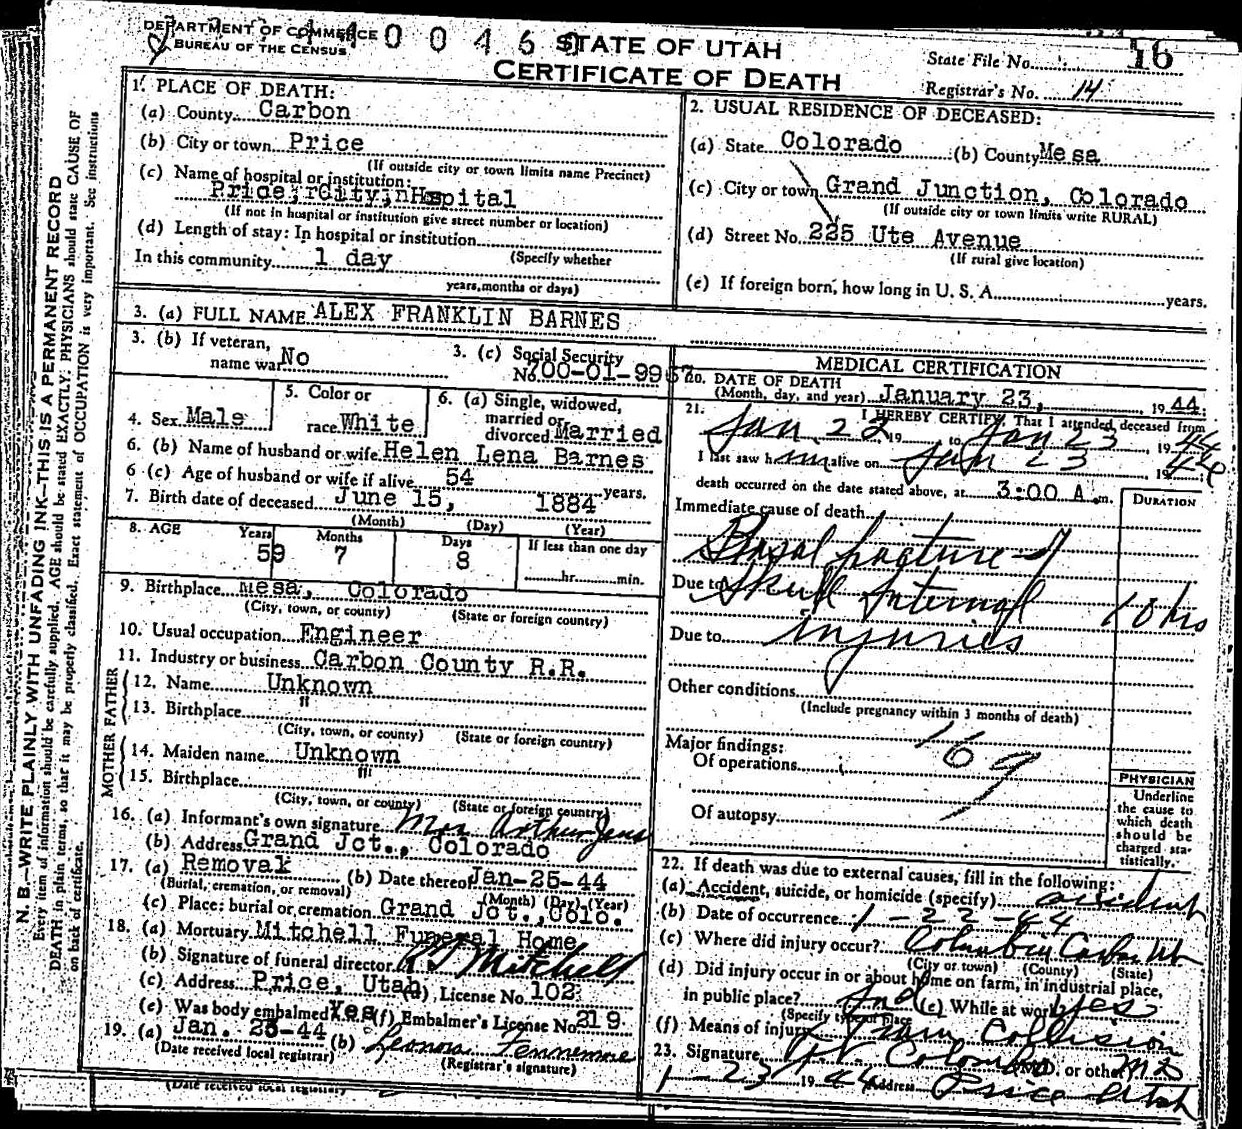 DEPARTMENT OF COMMERCE
BUREAU OF THE CENSUS
STATE OF UTAH
CERTIFICATE OF DEATH
State File No. 16
Registrar's No. 14
N. B.—WRITE PLAINLY WITH UNFADING INK—THIS IS A PERMANENT RECORD
Every item of information should be carefully supplied. AGE should be stated EXACTLY. PHYSICIANS should state CAUSE OF
DEATH in plain terms, so that it may be properly classified. Exact statement of OCCUPATION is very important. See instructions
on back of certificate.
1. PLACE OF DEATH:
(a) County Carbon
(b) City or town Price
(If outside city or town limits name Precinct)
(c) Name of hospital or institution:
Price City Hospital
(If not in hospital or institution give street number or location)
(d) Length of stay: In hospital or institution
In this community 1 day (Specify whether
years, months or days)
2. USUAL RESIDENCE OF DECEASED:
(a) State Colorado (b) County Mesa
(c) City or town Grand Junction, Colorado
(If outside city or town limits write RURAL)
(d) Street No. 225 Ute Avenue
(If rural give location)
(e) If foreign born, how long in U. S. A. years.
3. (a) FULL NAME ALEX FRANKLIN BARNES
3. (b) If veteran,
name war No
3. (c) Social Security
No. 700-01-9967
4. Sex Male
5. Color or
race White
6. (a) Single, widowed,
married or
divorced Married
6. (b) Name of husband or wife Helen Lena Barnes
6 (c) Age of husband or wife if alive 54 years.
7. Birth date of deceased June 15, 1884
(Month) (Day) (Year)
8. AGE Years Months Days If less than one day
59 7 8 hr. min.
9. Birthplace Mesa, Colorado
(City, town, or county) (State or foreign country)
10. Usual occupation Engineer
11. Industry or business Carbon County R.R.
FATHER
12. Name Unknown
13. Birthplace "
(City, town, or county) (State or foreign country)
MOTHER
14. Maiden name Unknown
15. Birthplace "
(City, town, or county) (State or foreign country)
16. (a) Informant's own signature Mrs Arthur
(b) Address Grand Jct., Colorado
17. (a) Removal (b) Date thereof Jan-25-44
(Burial, cremation, or removal) (Month) (Day) (Year)
(c) Place: burial or cremation Grand Jct., Colo.
18. (a) Mortuary Mitchell Funeral Home
(b) Signature of funeral director Mitchell
(c) Address Price, Utah (d) License No. 102
(e) Was body embalmed Yes (f) Embalmer's License No. 219
19. (a) Jan. 25-44 (b) Leonora Fennemore
(Date received local registrar) (Registrar's signature)
MEDICAL CERTIFICATION
20. DATE OF DEATH
(Month, day, and year) January 23, 1944.
21. I HEREBY CERTIFY, That I attended deceased from
Jan. 23 19 to Jan 23 1944
I last saw him alive on Jan 23 1944
death occurred on the date stated above, at 3:00 A. m.
DURATION
Immediate cause of death
Basal fracture of
Due to Skull Internal 10 hrs
Due to injuries
Other conditions
(Include pregnancy within 3 months of death)
169
Major findings:
Of operations
Of autopsy
PHYSICIAN
Underline
the cause to
which death
should be
charged sta-
tistically.
22. If death was due to external causes, fill in the following:
(a) Accident, suicide, or homicide (specify) accident
(b) Date of occurrence 1-22-44
(c) Where did injury occur? Columbia Carbon Ut
(City or town) (County) (State)
(d) Did injury occur in or about home on farm, in industrial place,
in public place? Ind (e) While at work? yes
(Specify type of place)
(f) Means of injury Train Collision
23. Signature Colombo M.D. or other MD
1-23 1944 Address Price Utah
(Date received local registrar)